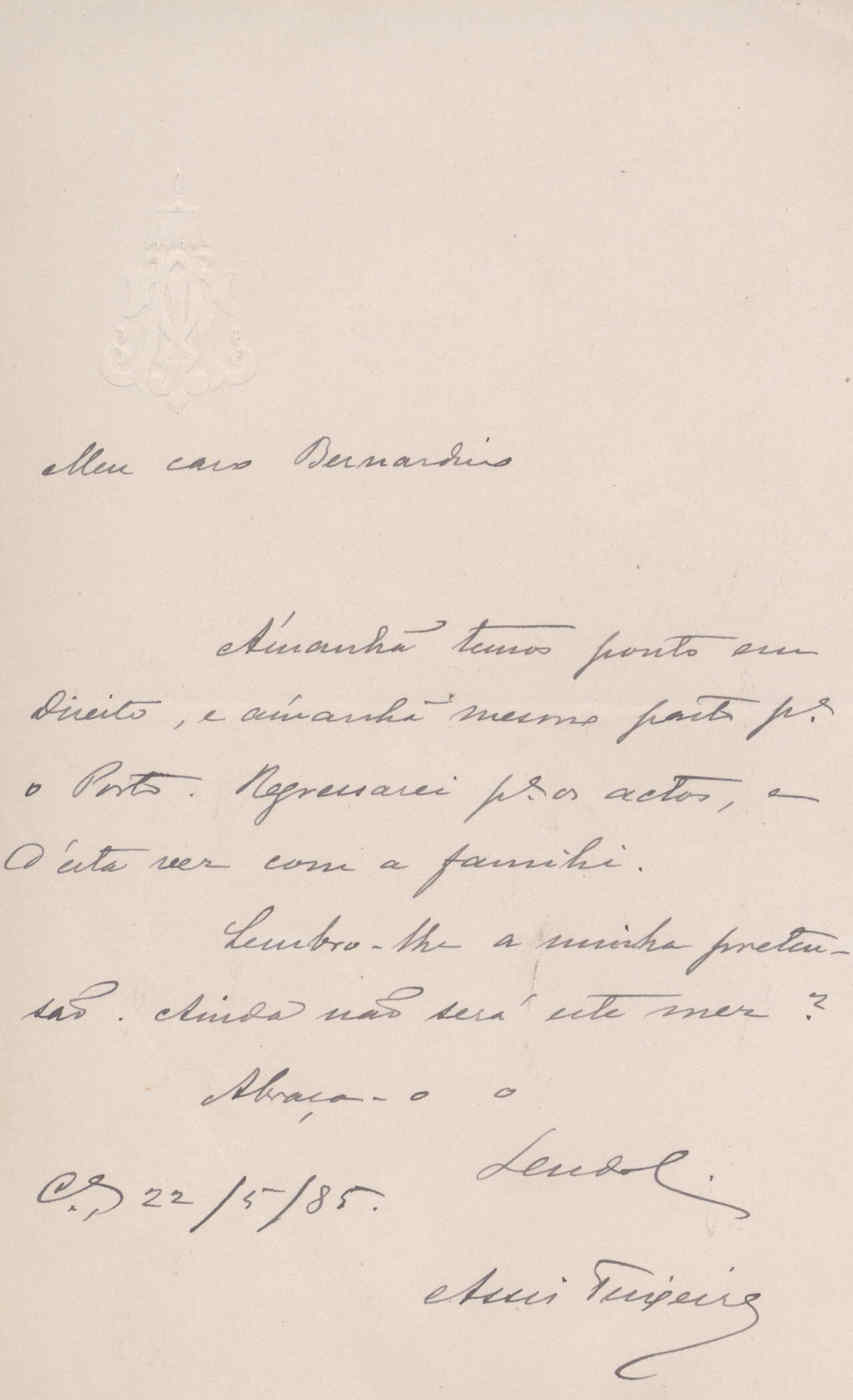 Meu caro Bernardino
Ámanhã temos ponto em
Direito, e ámanhã mesmo parto pª
o Porto. Regressarei pª os actos, e
d'esta vez com a familia.
Lembro-lhe a minha preten-
são. Ainda não será este mez?
Abraça-o o
Cª, 22/5/85.
Assis Teixeira